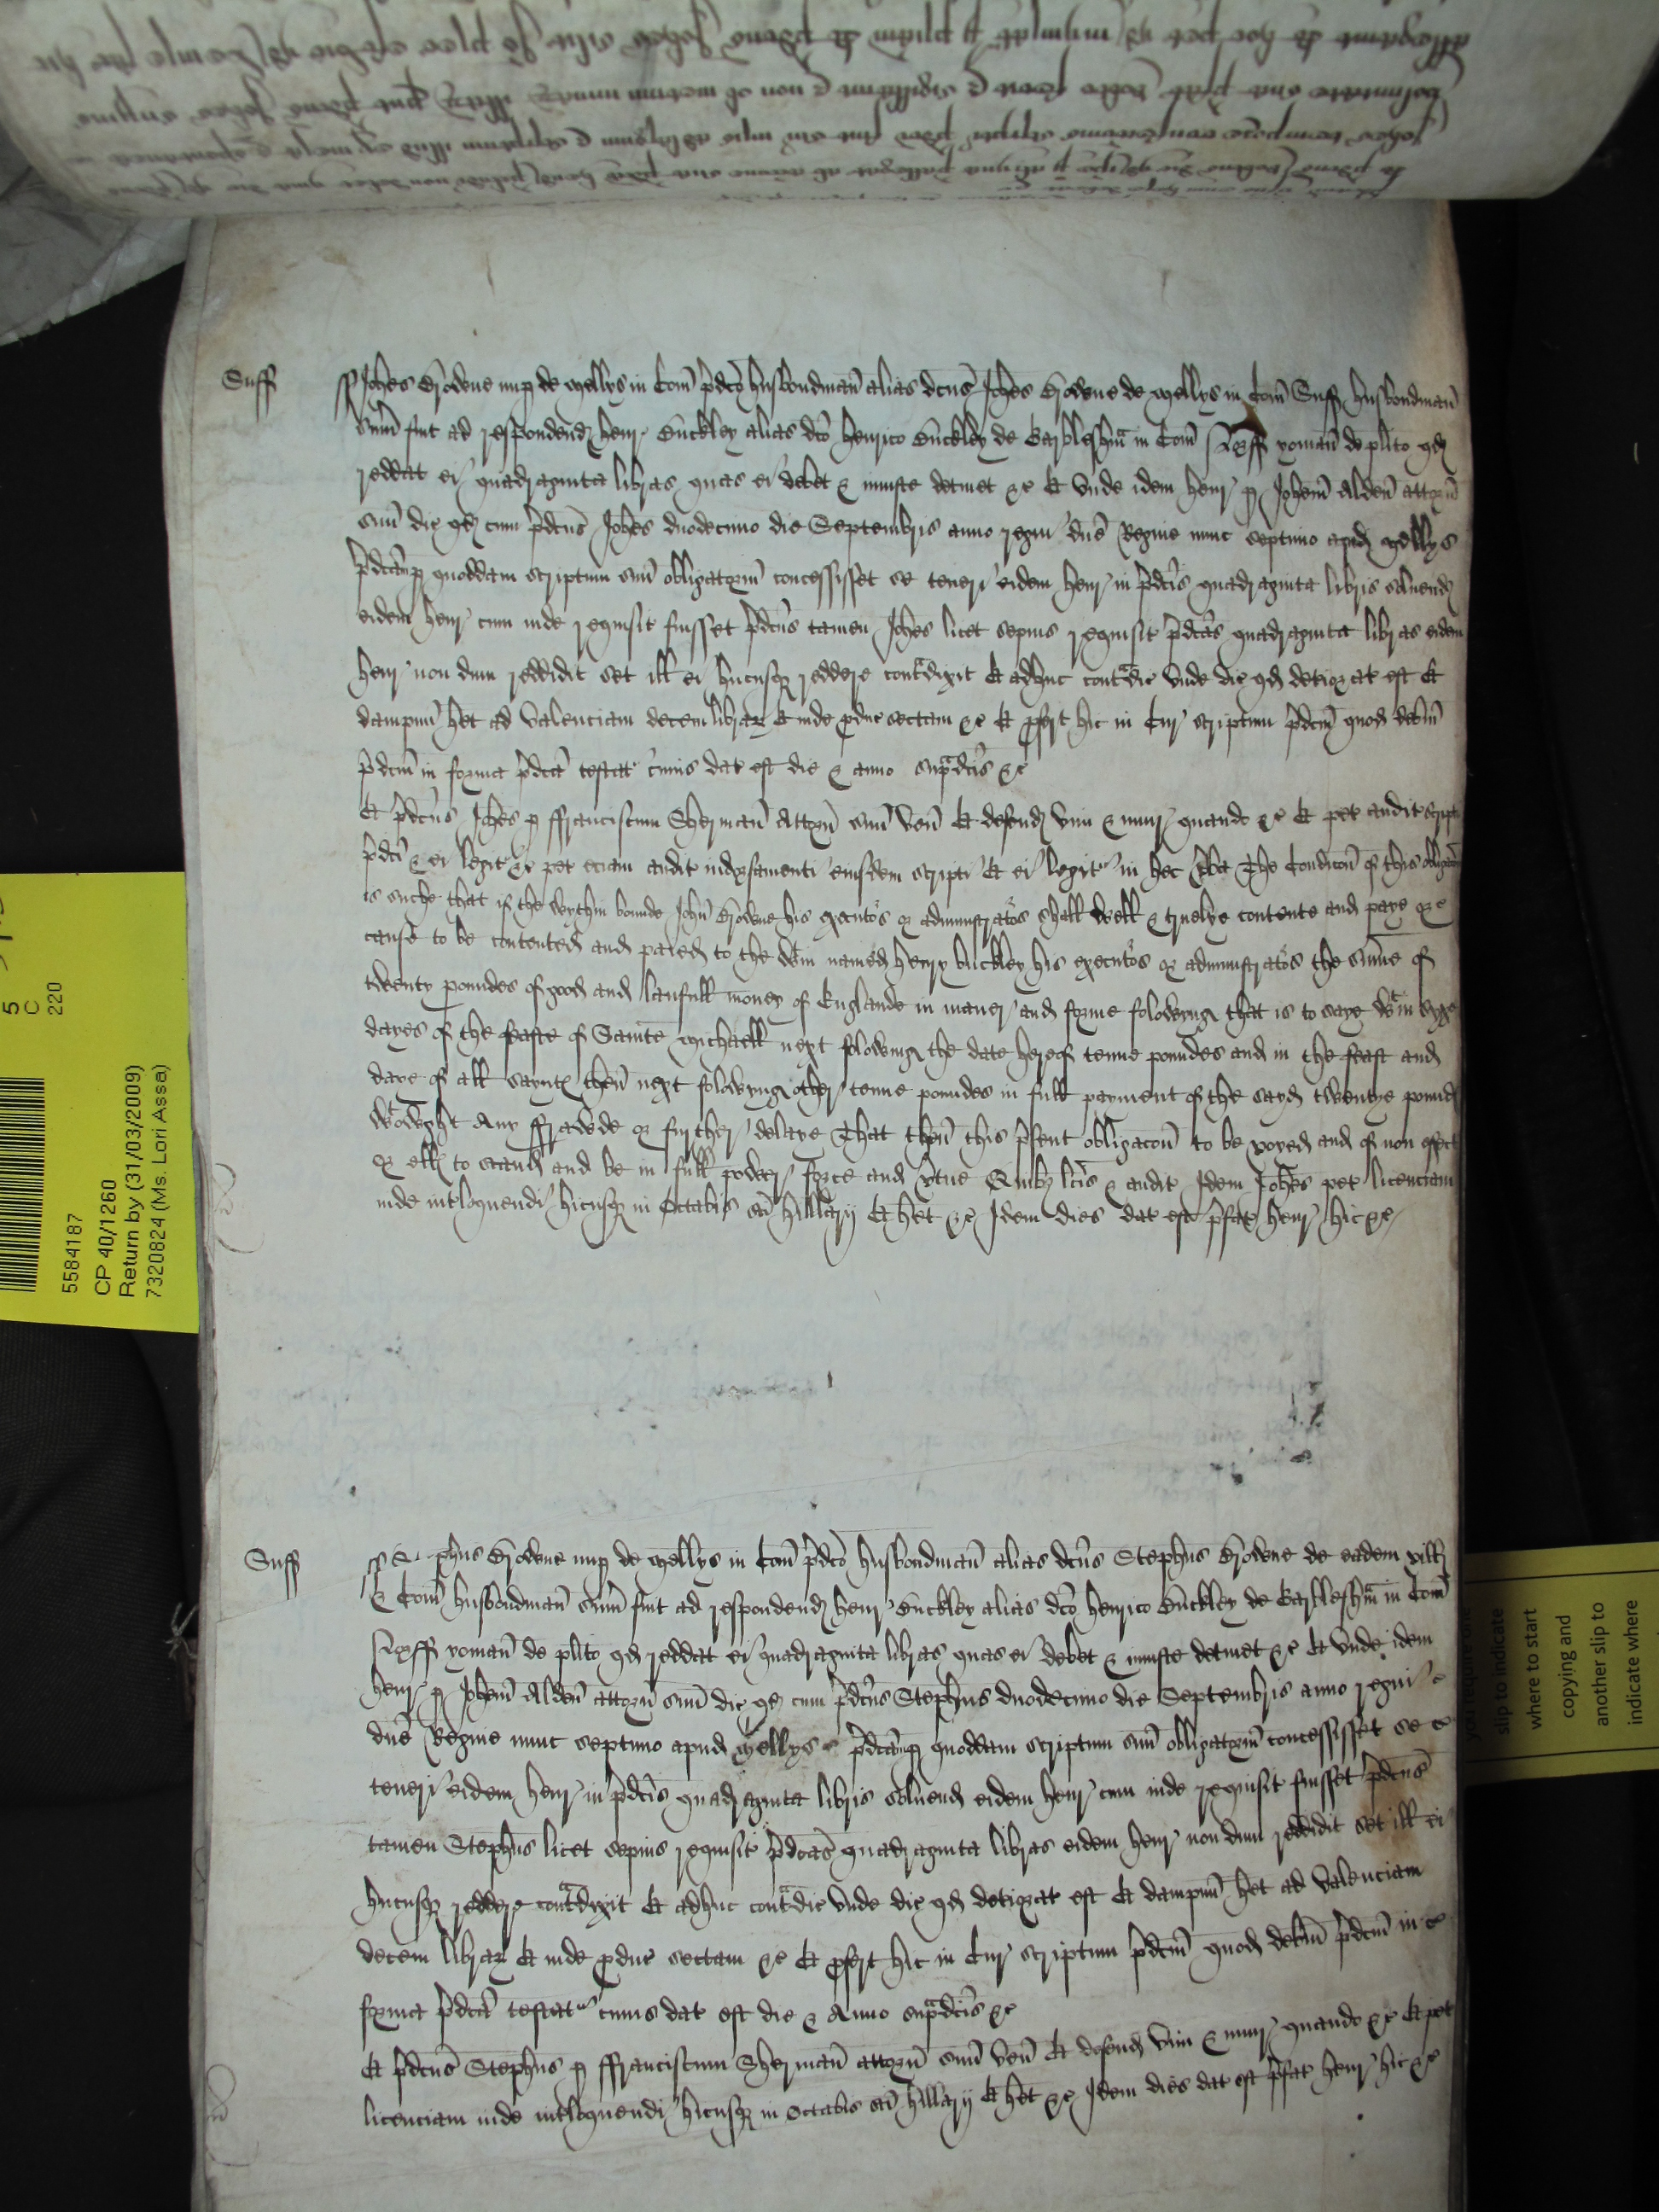 Suff
Johes Browne nup de Mellys in Com pdco husbondman alias dcus Johes Browne de Mellys in Com Suff husbondman
sum fuit ad respondend Henr Buckley alias dco Henrico Buckley de Garbleshm in Com Norff yoman de plito qd
reddat ei quadraginta libras quas ei debet & iniuste detinet &c Et unde idem Henr p Johem Alden attorn
suu dic qd cum pdcus Johes duodecimo die Septembris anno regni dne Regine nunc septimo apud Mellys
pdcam p quoddam scriptum suu obligatorm concessisset se teneri eidem Henr in pdcis quadraginta libris solvend
eidem Henr cum inde requisit fuisset pdcus tamen Johes licet sepius requisit pdcas quadraginta libras eidem
Henr non dum reddidit set ill ei hucusq reddere contradixit Et adhuc contradic unde dic qd deteriorat est Et
dampnu het ad valenciam decem librar Et inde pduc sectam &c Et pfert hic in Cur scriptum pdcm quod debm
pdcm in forma pdca testat cuius dat est die & anno supradcis &c
Et pdcus Johes p ffranciscum Sherman Attorn suu ven Et defend vim & iniur quando &c Et pet audit scripti
pdci & ei legit &c pet eciam audit indorsamenti eiusdem scripti Et ei legit in hec vba The Condicon of this obligacon
is suche that if the wythin bounde John Browne his executors or administrators shall well & truelye contente and paye or
cause to be contented and paied to the wtin named Henry Buckley his executors or administrators the sume of
twenty poundes of good and laufull money of Englande in maner and forme folowyng that is to saye wtin syxe
dayes of the feaste of Sainte Michaell next folowing the date hereof tenne poundes and in the feast and
daye of all saynts then next folowyng other tenne poundes in full payment of the sayd twentye pounds
wtowght Any ffrawde or further delaye That then this psent obligacon to be voyed and of non effect
or ells to stand and be in full power force and vtue Quibz lcis & audit Idem Johes pet licenciam
inde intloquendi hicusq in Octabis sci Hillarij Et het &c Idem dies dat est pfat Henr hic &c
Suff
phus Browne nup de Mellys in Com pdco husbondman alias dcus Stephus Browne de eadem vill
& Com husbondman sum fuit ad respondend Henr Buckley alias dco Henrico Buckley de Garbleshm in Com
Norff yoman de plito qd reddat ei quadraginta libras quas ei debet & iniuste detinet &c Et unde idem
Henr p Johem Alden attorn suu dic qd cum pdcus Stephus duodecimo die Septembris anno regni
dne Regine nunc septimo apud Mellys pdcam p quoddam scriptum suu obligatorm concessisset se
teneri eidem Henr in pdcis quadraginta libris solvend eidem Henr cum inde requisit fuisset pdcus
tamen Stephus licet sepius requisit pdcas quadraginta libras eidem Henr non dum reddidit set ill ei
hucusq reddere contradixit Et adhuc contradic unde dic qd deteriorat est Et dampnu het ad valenciam
decem librar Et inde pduc sectam &c Et pfert hic in Cur scriptum pdcm quod debm pdcm in
forma pdca testat cuius dat est die & Anno supradcis &c
Et pdcus Stephus p ffranciscum Sherman attorn suu ven Et defend vim & iniur quando &c Et pet
licenciam inde intloquendi hicusq in octabis sci Hillarij Et het &c Idem dies dat est pfat Henr hic &c
5
C
220
5584187
CP 40/1260
Return by (31/03/2009)
7320824 (Ms. Lori Assa)
slip to indicate
where to start
copying and
another slip to
indicate where